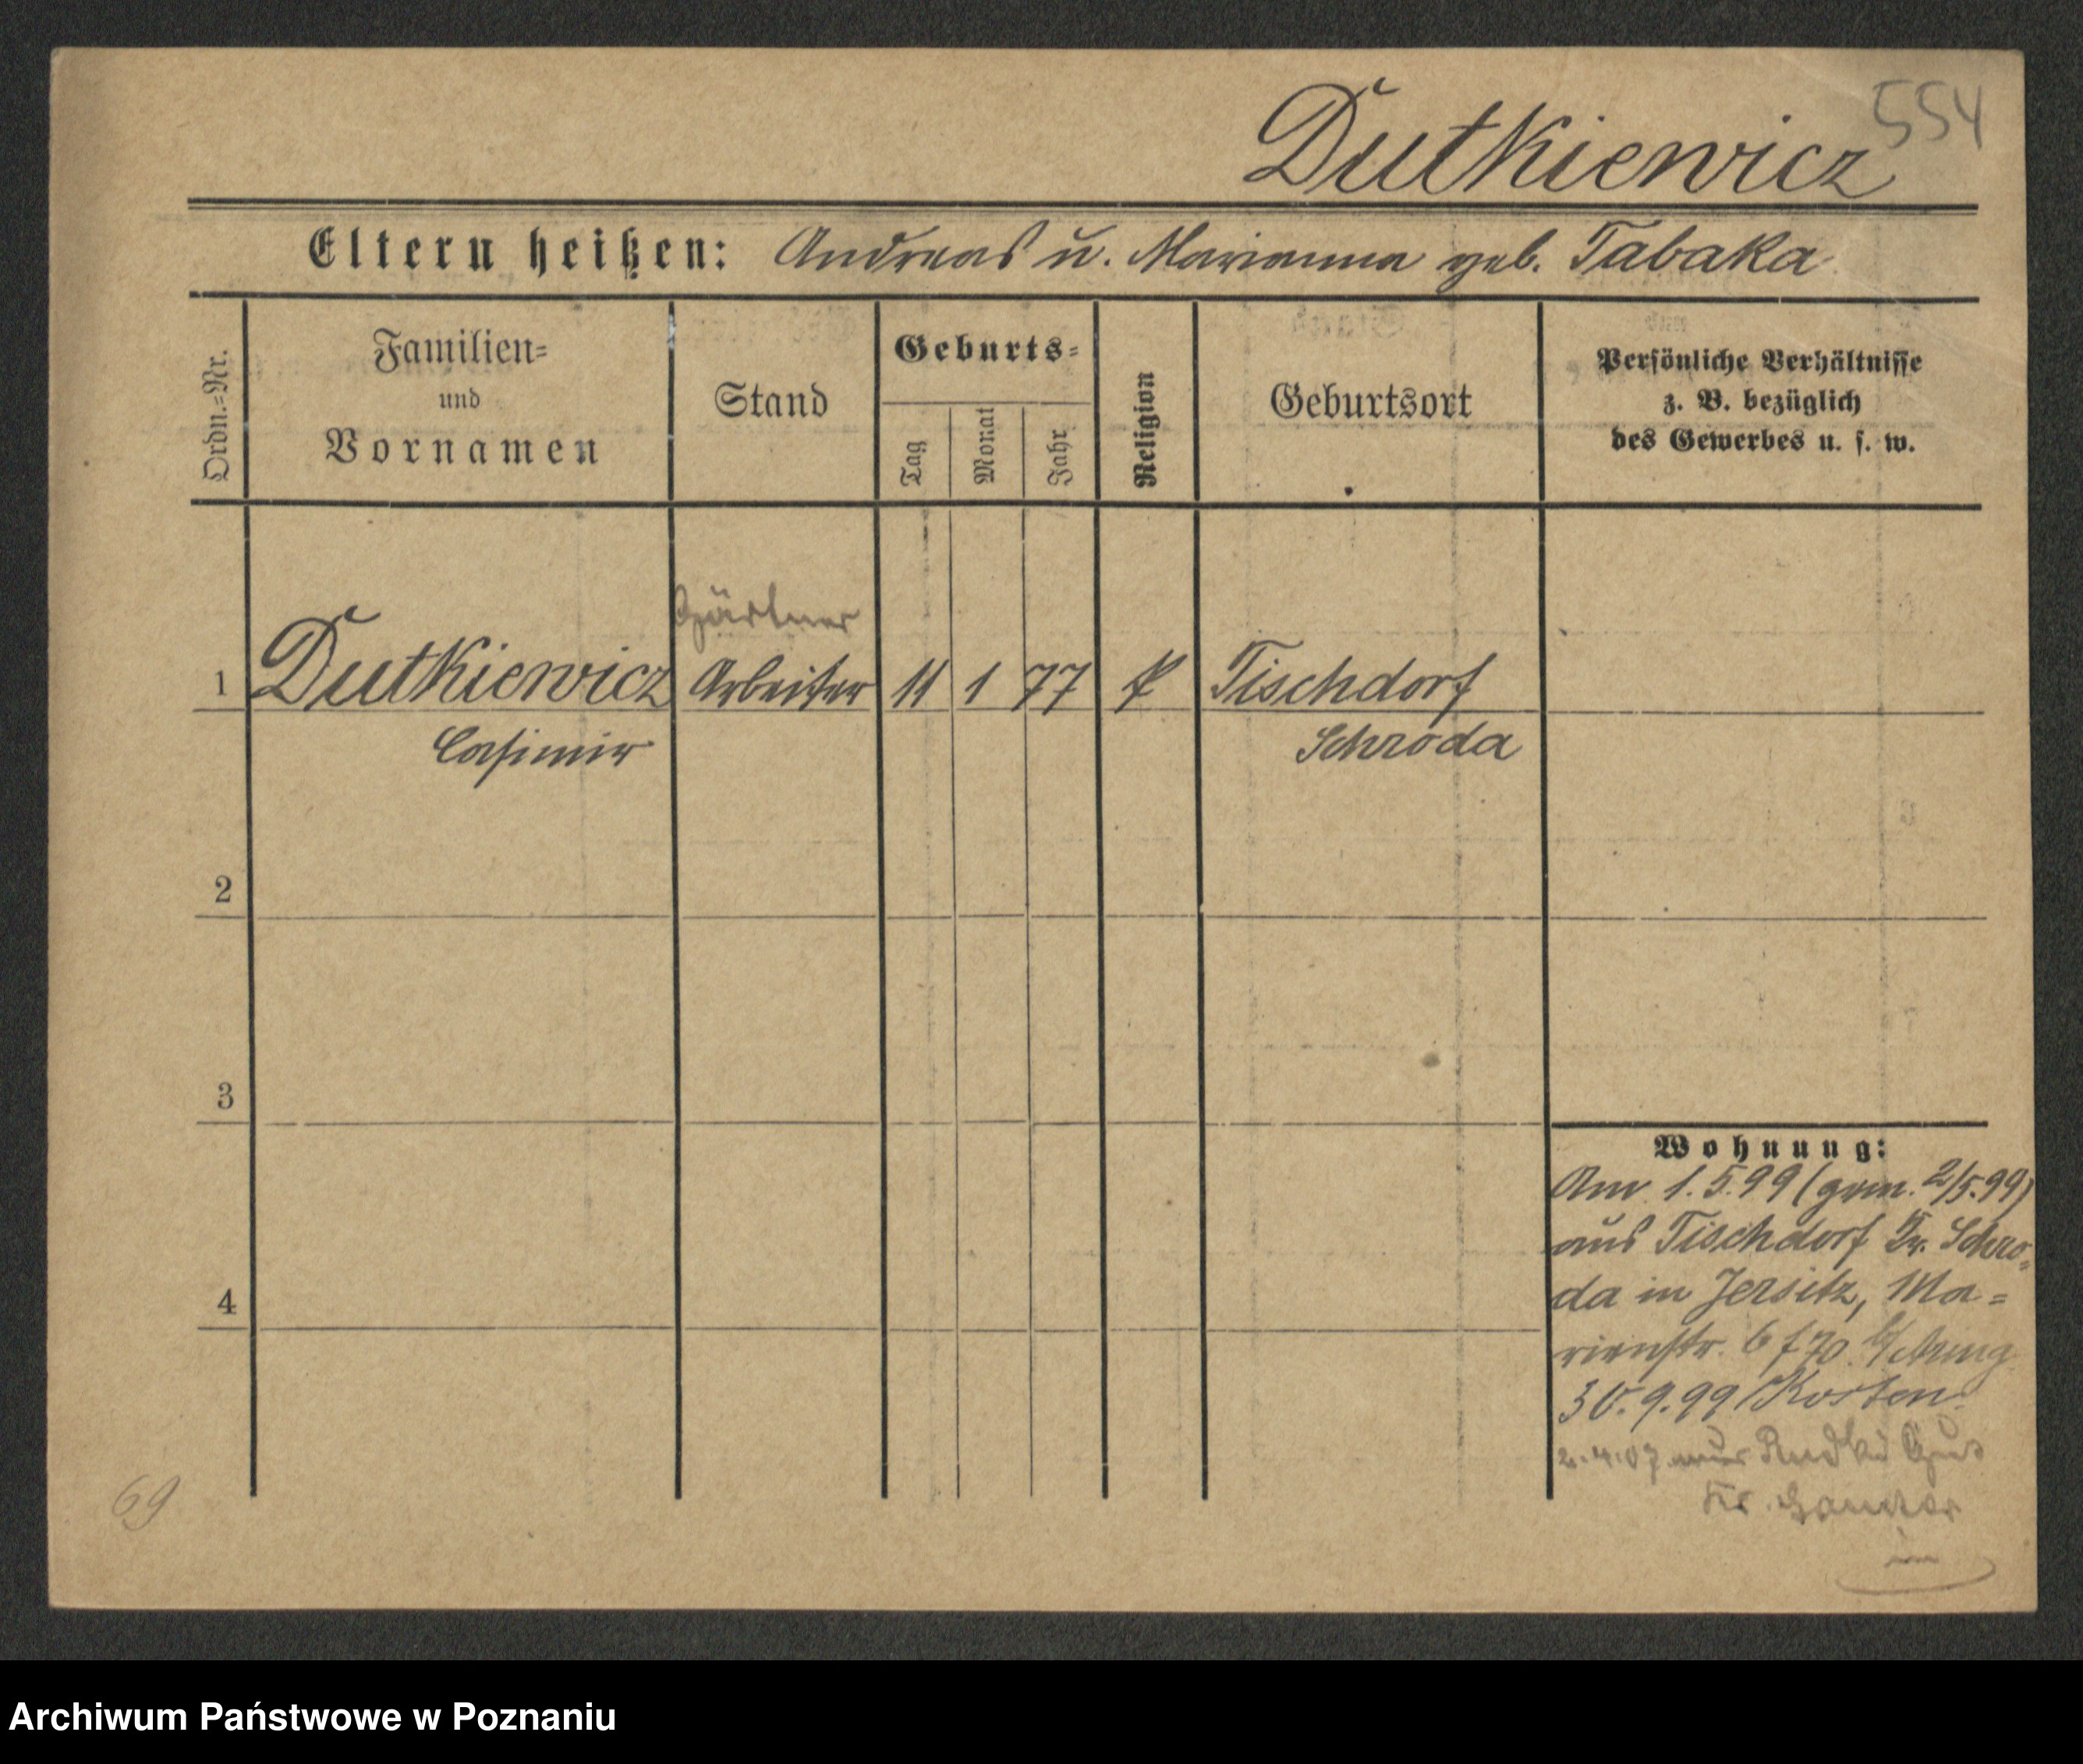 554
Dutkiewicz
Eltern heißen: Andreas u. Marianna geb. Tabaka
Ordn.-Nr.
Familien-
und
Vornamen
Stand
Geburts-
Tag
Monat
Jahr
Religion
Geburtsort
Persönliche Verhältnisse
z. B. bezüglich
des Gewerbes u. s. w.
Gärtner
1 Dutkiewicz Arbeiter 11 1 77 k Tischdorf
Casimir Schroda
2
3
4
Wohnung:
Am 1.5.99 (gem. 2/5.99)
aus Tischdorf Kr. Schro-
da in Jersitz, Ma-
rienstr. 6
30.9.99 Kosten
2.4.07 Gut
Kr. Samter
69
Archiwum Państwowe w Poznaniu